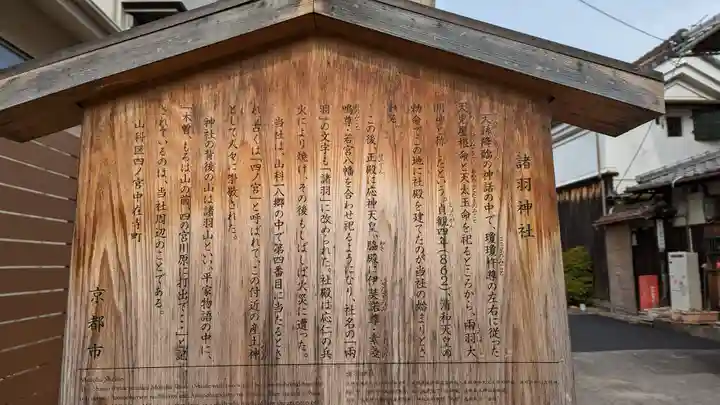 諸羽神社
天孫降臨の神話の中で、瓊瓊杵尊の左右に従った
天児屋根命と天太玉命を祀るところから、両羽大
明神と称したという。貞観四年(862)、清和天皇の
勅命でこの地に社殿を建てたのが当社の始まりとさ
れる。
この後、正殿に応神天皇、脇殿に伊奘諾尊・素戔
嗚尊・若宮八幡を合わせ祀るようになり、社名の「両
羽」の文字も「諸羽」に改められた。社殿は応仁の兵
火により焼け、その後もしばしば火災に遭った。
当社は、山科一八郷の中で第四番目に当たるとさ
れ、古くは「四ノ宮」と呼ばれて、この付近の産土神
として人々に尊敬された。
神社の背後の山は諸羽山といい、平家物語の中に、
「木曽、もろは山の前、四の宮川原に打出で…」と記
されているのは、当社周辺のことである。
山科区四ノ宮中在寺町
京都市
Moroha Shrine